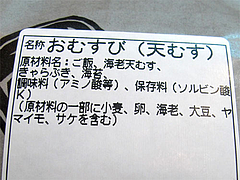 名称 おむすび（天むす）
原材料名：ご飯、海老天むす、
きゃらぶき、海苔、
調味料（アミノ酸等）、保存料（ソルビン酸
K）
（原材料の一部に小麦、卵、海老、大豆、ヤ
マイモ、サケを含む）